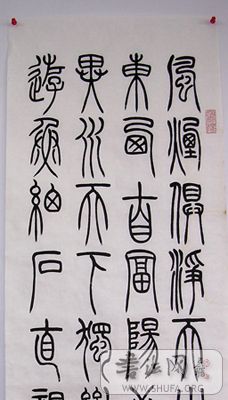 風煙俱淨天
東西自富陽
異水天下獨絕
遊魚細石直視
書法网
WWW.SHUFA.ORG